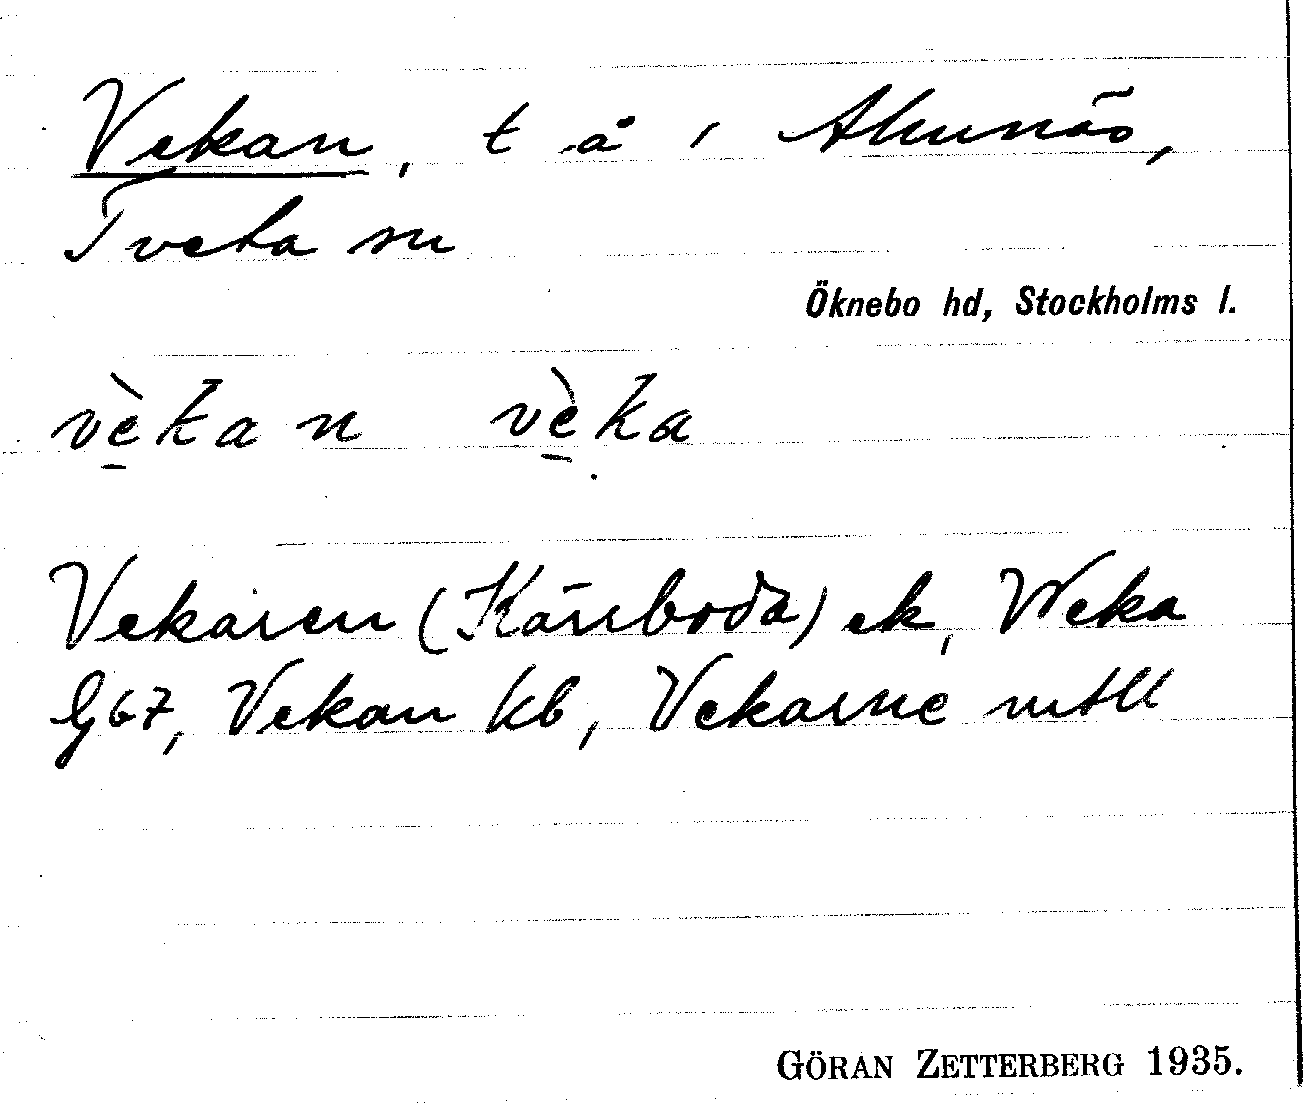 Vekan, t å i Almnäs,
Tveta sn
Öknebo hd, Stockholms l.
vèkan vèka
Vekaren (Kärrboda) ek, Weka
G67, Vekan kb, Vekarne mtll
GÖRAN ZETTERBERG 1935.